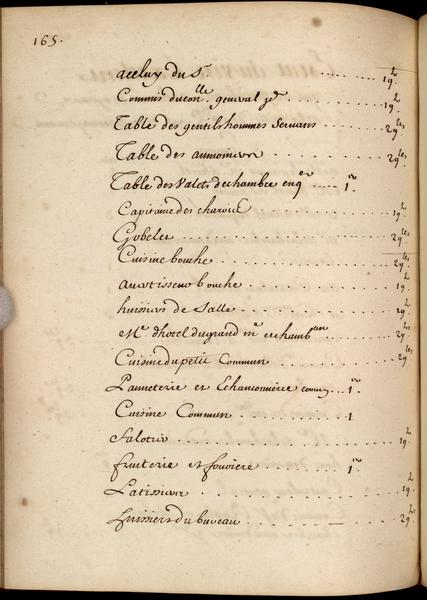 165.
aceluy du Sr ..... 1q. 2
Commis du conlle. general jd ..... 1q. 2
Table des gentilshommes Servans ..... 2q. les
Table des aumoniers ..... 2q. les
Table des Valets de chambre enqer ..... 1. er
Capitaine des charois ..... 1q. 2
Gobelet ..... 2q. les
Cuisine bouche ..... 2q. les
avertisseur bouche ..... 1q. 2
huissiers de Salle ..... 2q. 2
Mr. d'hotel du grand me et chambellan ..... 2q. 2s
Cuisine du petit Commun ..... 2q. les
Panneterie et Echansonnerie commun ..... 1. er
Cuisine Commun ..... 1
Salotiers ..... 1q. 2
fruiterie et fouriere ..... 1. er
Patissier ..... 1q. 2
huissiers du bureau ..... 2q. 2s